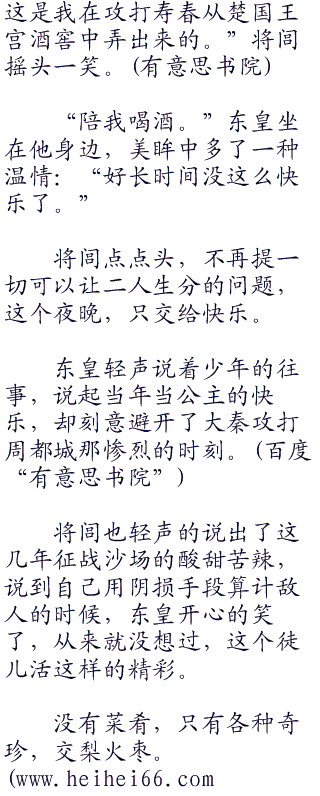 这是我在攻打寿春从楚国王
宫酒窖中弄出来的。”将闾
摇头一笑。(有意思书院)
“陪我喝酒。”东皇坐
在他身边，美眸中多了一种
温情：“好长时间没这么快
乐了。”
将闾点点头，不再提一
切可以让二人生分的问题，
这个夜晚，只交给快乐。
东皇轻声说着少年的往
事，说起当年当公主的快
乐，却刻意避开了大秦攻打
周都城那惨烈的时刻。(百度
“有意思书院”)
将闾也轻声的说出了这
几年征战沙场的酸甜苦辣，
说到自己用阴损手段算计敌
人的时候，东皇开心的笑
了，从来就没想过，这个徒
儿活这样的精彩。
没有菜肴，只有各种奇
珍，交梨火枣。
(www.heihei66.com